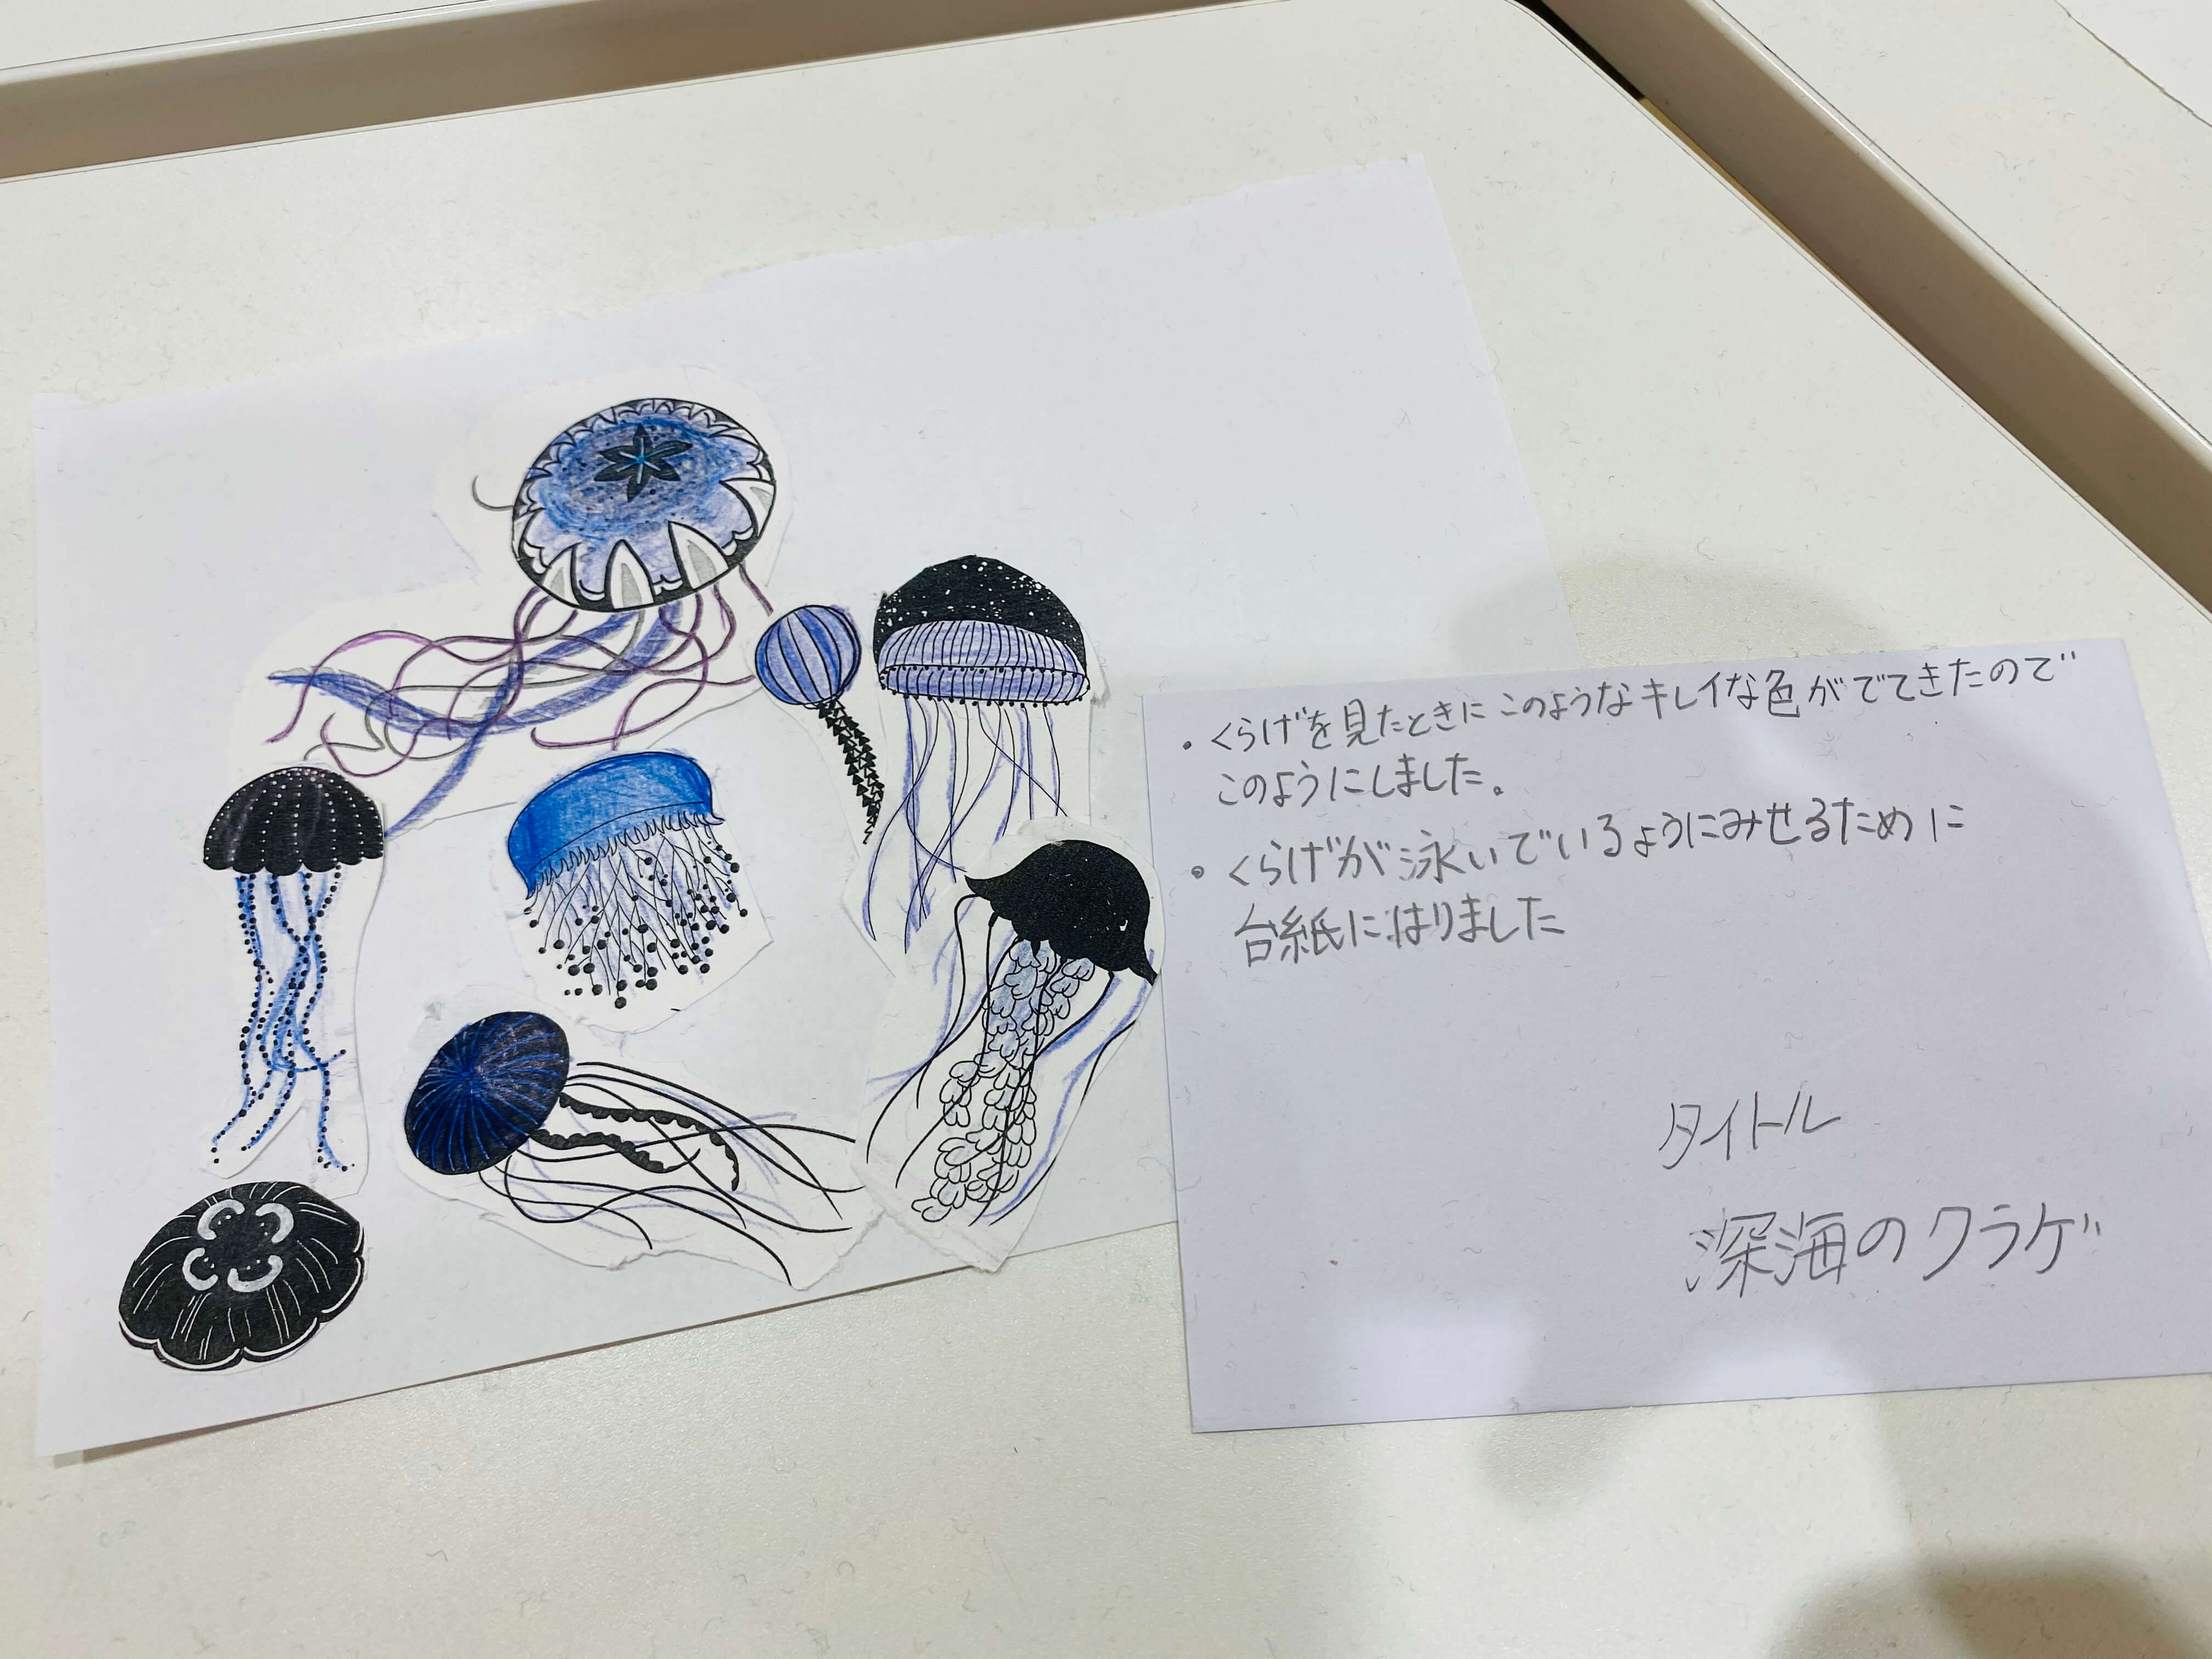 ・くらげを見たときにこのようなキレイな色がでてきたので
このようにしました。
・くらげが泳いでいるようにみせるために
台紙にはりました
タイトル
深海のクラゲ